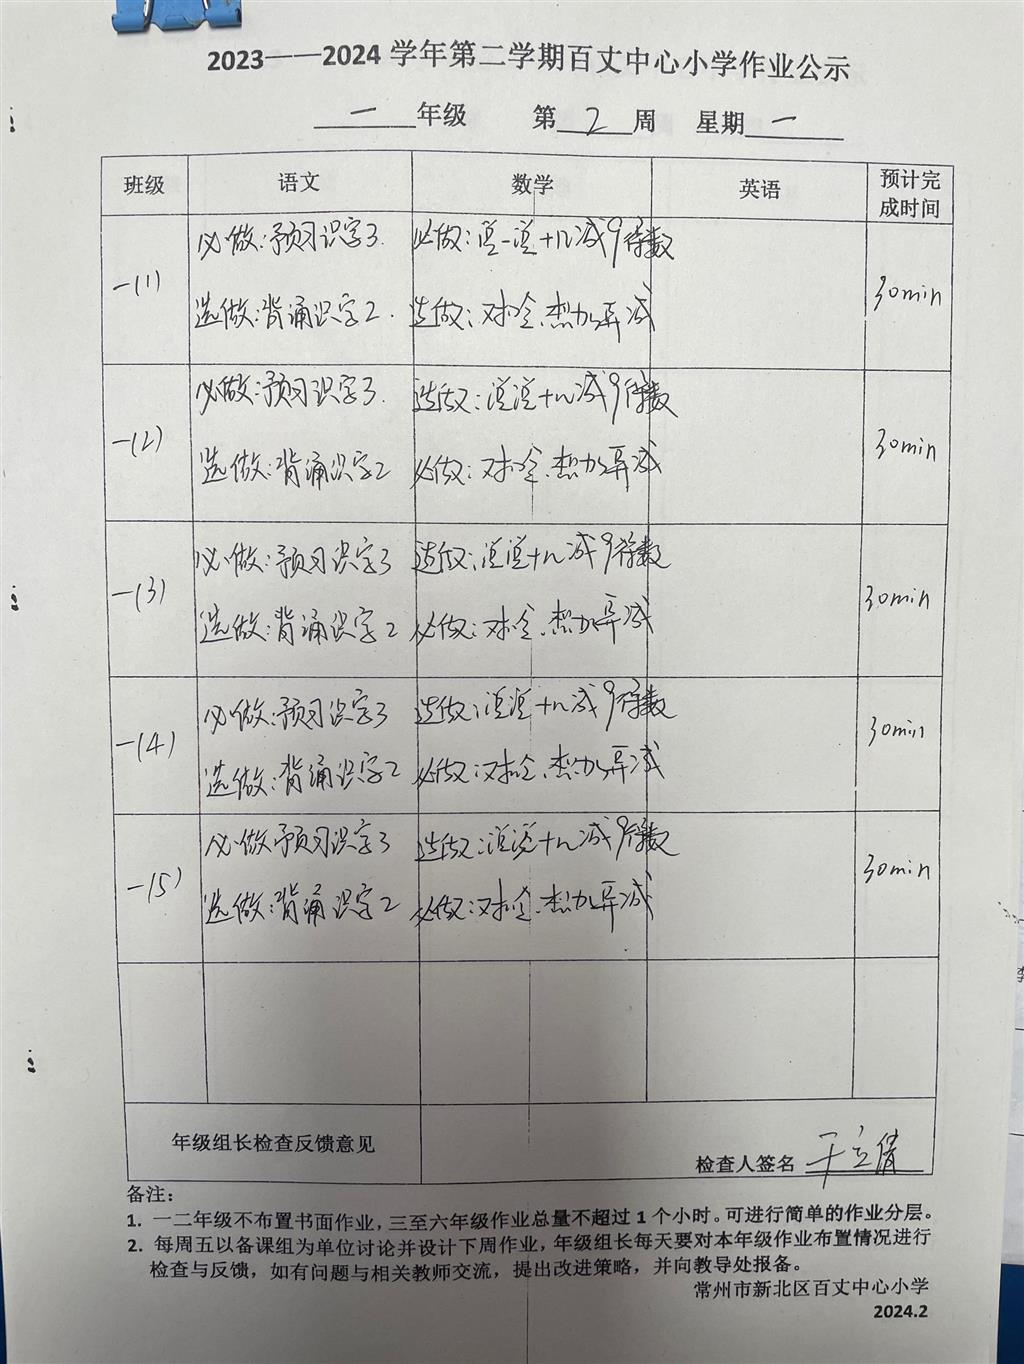 2023——2024 学年第二学期百丈中心小学作业公示
一 年级 第 2 周 星期 一
班级 语文 数学 英语 预计完成时间
必做:预习识字3. 必做:说一说十几减9得数
一(1) 30min
选做:背诵识字2. 选做:对口令、想加算减
必做:预习识字3. 选做:说说十几减9得数
一(2) 30min
选做:背诵识字2 必做:对口令、想加算减
必做:预习识字3 选做:说说十几减9得数
一(3) 30min
选做:背诵识字2 必做:对口令、想加算减
必做:预习识字3 选做:说说十几减9得数
一(4) 30min
选做:背诵识字2 必做:对口令、想加算减
必做预习识字3 选做:说说十几减9得数
一(5) 30min
选做:背诵识字2 必做:对口令、想加算减
年级组长检查反馈意见
检查人签名
备注:
1. 一二年级不布置书面作业,三至六年级作业总量不超过 1 个小时。可进行简单的作业分层。
2. 每周五以备课组为单位讨论并设计下周作业,年级组长每天要对本年级作业布置情况进行
检查与反馈,如有问题与相关教师交流,提出改进策略,并向教导处报备。
常州市新北区百丈中心小学
2024.2